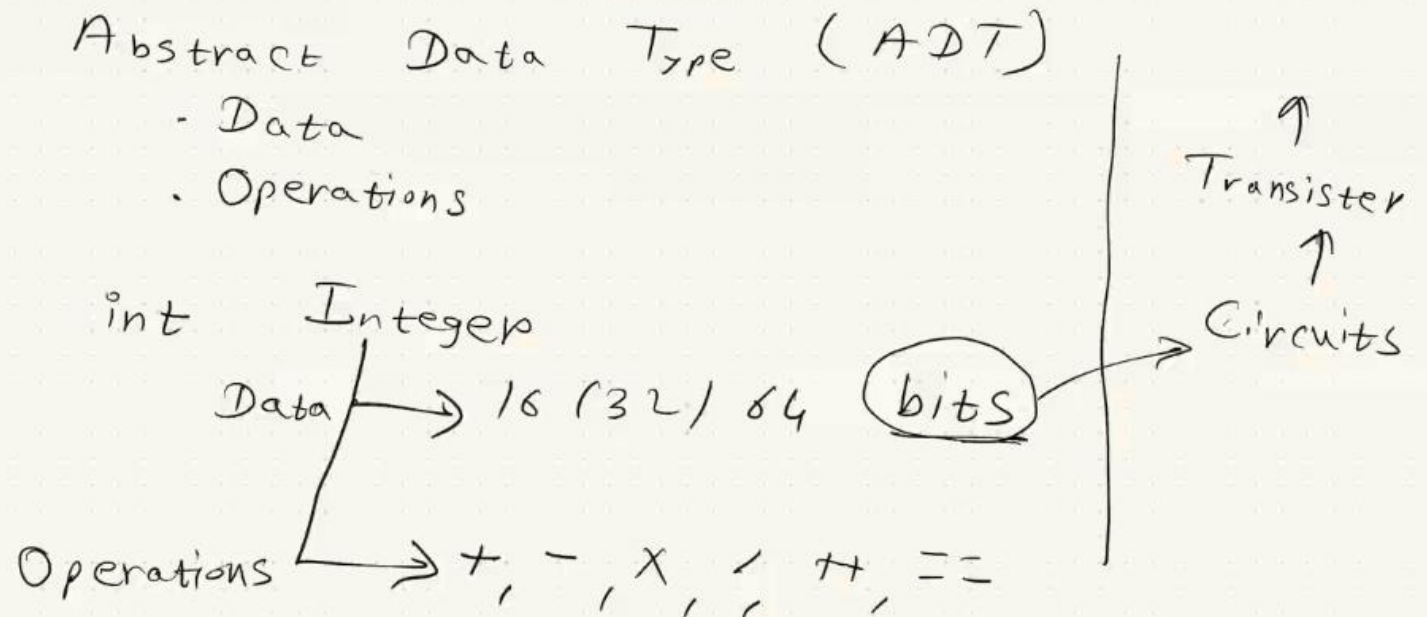 Abstract Data Type (ADT)
· Data
· Operations
int Integer
Data → 16 (32) 64 bits
Operations → +, -, x, /, ++, ==
↑
Transister
↑
Circuits